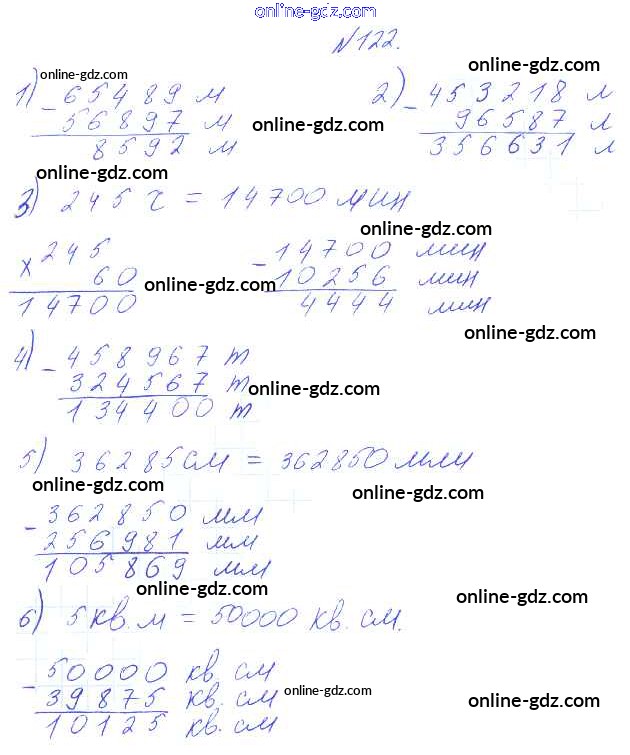 online-gdz.com
№122.
online-gdz.com
online-gdz.com
1) - 65489 м
56897 м
8592 м
2) - 453218 л
96587 л
356631 л
online-gdz.com
online-gdz.com
3) 245 ч = 14700 мин
online-gdz.com
× 245
60
14700
- 14700 мин
10256 мин
4444 мин
online-gdz.com
online-gdz.com
4) - 458967 т
324567 т
134400 т
online-gdz.com
5) 36285 см = 362850 мм
online-gdz.com
online-gdz.com
- 362850 мм
256981 мм
105869 мм
online-gdz.com
6) 5 кв. м = 50000 кв. см.
- 50000 кв. см
39875 кв. см
10125 кв. см
online-gdz.com
online-gdz.com